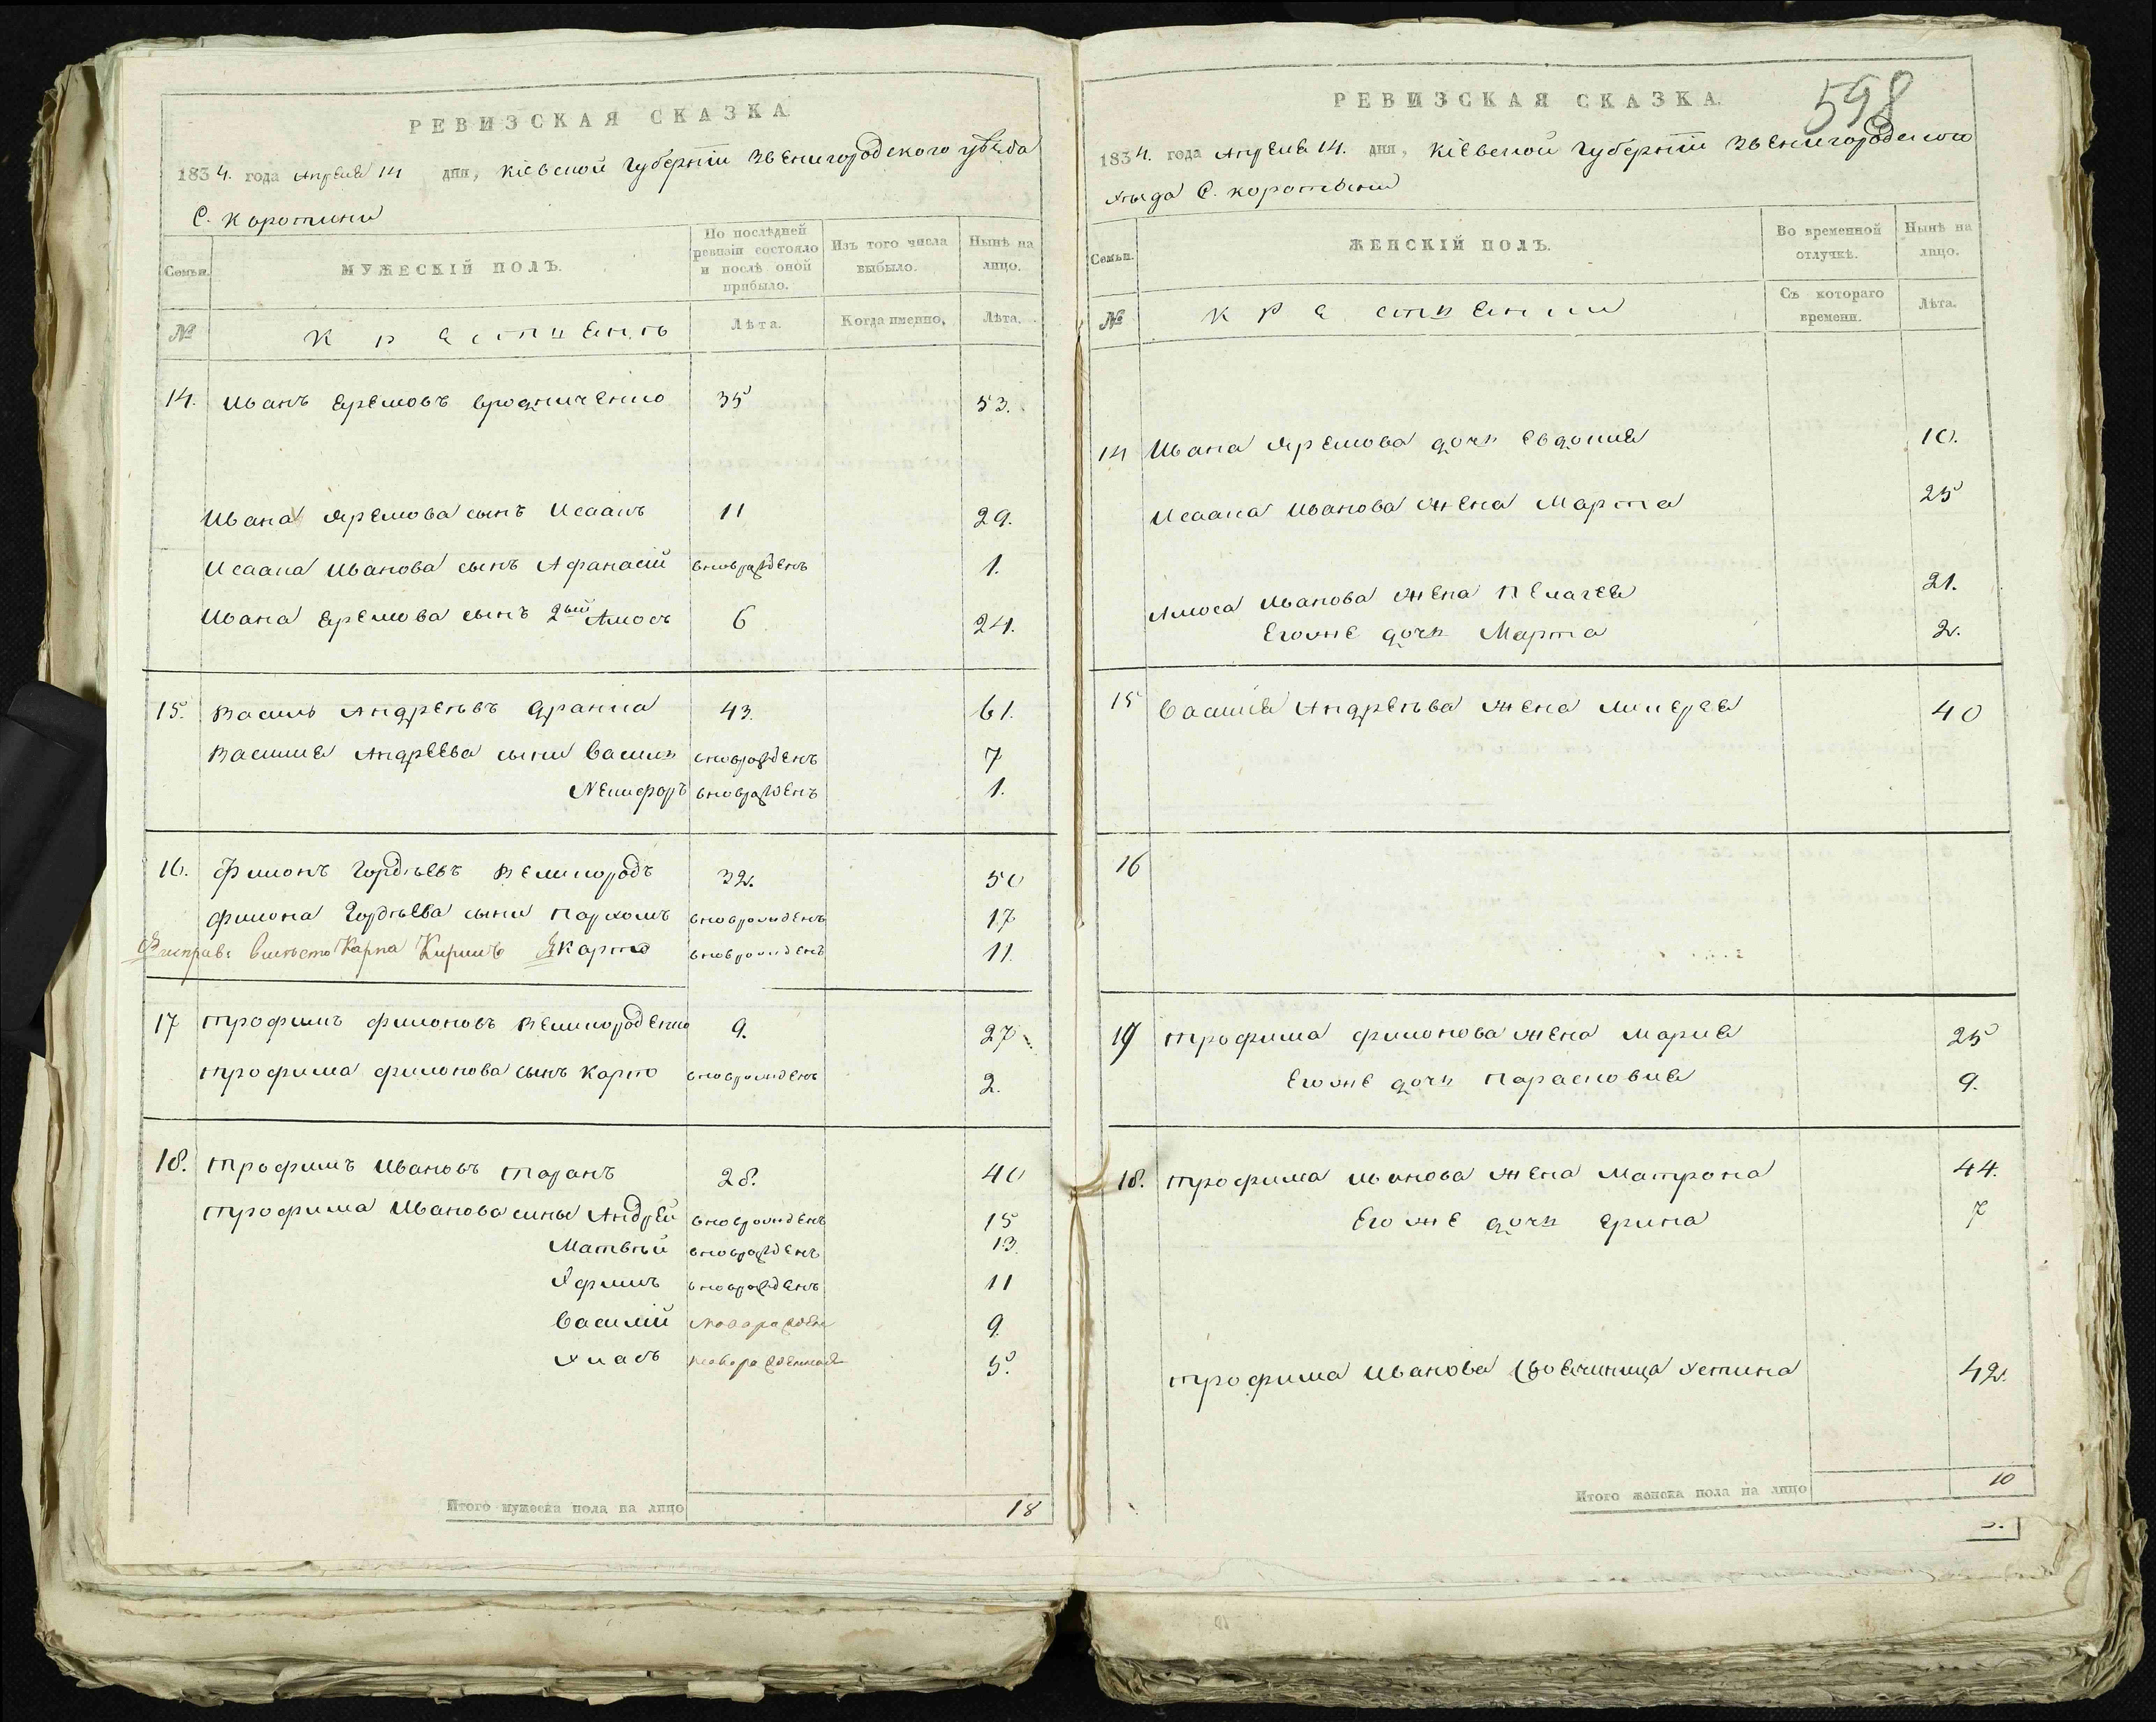 РЕВИЗСКАЯ СКАЗКА
1834. года Апреля 14 дня, Кіевской Губерніи Звенигородского уѣзда
С. Коротини
Семьи.
МУЖЕСКІЙ ПОЛЪ.
По послѣдней ревизіи состояло и послѣ оной прибыло.
Изъ того числа выбыло.
Нынѣ на лицо.
№
Крестиянъ
Лѣта.
Когда именно.
Лѣта.
14. Иванъ Еремовъ 35 53.
Ивана Яремова сынъ Исаакъ 11 29.
Исаака Иванова сынъ Афанасій вноврожденъ 1.
Ивана Еремова сынъ 2ый Амосъ 6 24.
15. Василь Андреѣвъ Дранка 43. 61.
Василия Андреева сыни Василь вноврожденъ 7
Некифоръ вноврожденъ 1.
16. Филонъ Гордѣевъ Велигородъ 32. 50
Филона Гордѣева сыни Пархомъ вноврожденъ 17
вмѣсто Карпа Кирило Карпо вноврожденъ 11.
17 Трофимъ Филоновъ Велигороденко 9. 27
Трофима Филонова сынъ Карпо вноврожденъ 2.
18. Трофимъ Ивановъ Таранъ 28. 40
Трофима Иванова сины Андрей вноврожденъ 15
Матвѣй вноврожденъ 13.
Яфимъ вноврожденъ 11
Василій 9
Улас 5.
Итого мужеска пола на лицо 18
598
РЕВИЗСКАЯ СКАЗКА.
1834. года Апреля 14. дня, Кіевской Губерніи Звенигородского
уѣзда С. Коротини
Семьи.
ЖЕНСКІЙ ПОЛЪ.
Во временной отлучкѣ.
Нынѣ на лицо.
№
Крестиянки
Съ котораго времени.
Лѣта.
14 Ивана Яремова дочь Евдокия 10.
Исаака Иванова жена Марта 25
Амоса Иванова жена Пелагея 21.
Егоже дочь Марта 2.
15 Василия Андреѣва жена 40
16
17 Трофима Филонова жена Мария 25
Егоже дочь Парасковия 9.
18. Трофима Иванова жена Матрона 44.
Егоже дочь Ерина 7
Трофима Иванова Своячиница Устина 42.
Итого женска пола на лицо 10